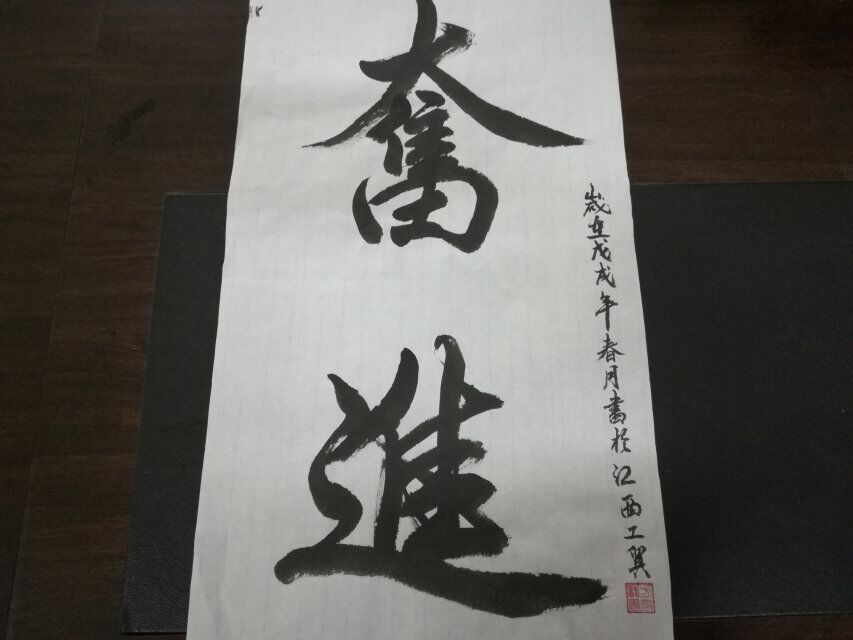 奮
進
歲在戊戌年春月書於江西工翼